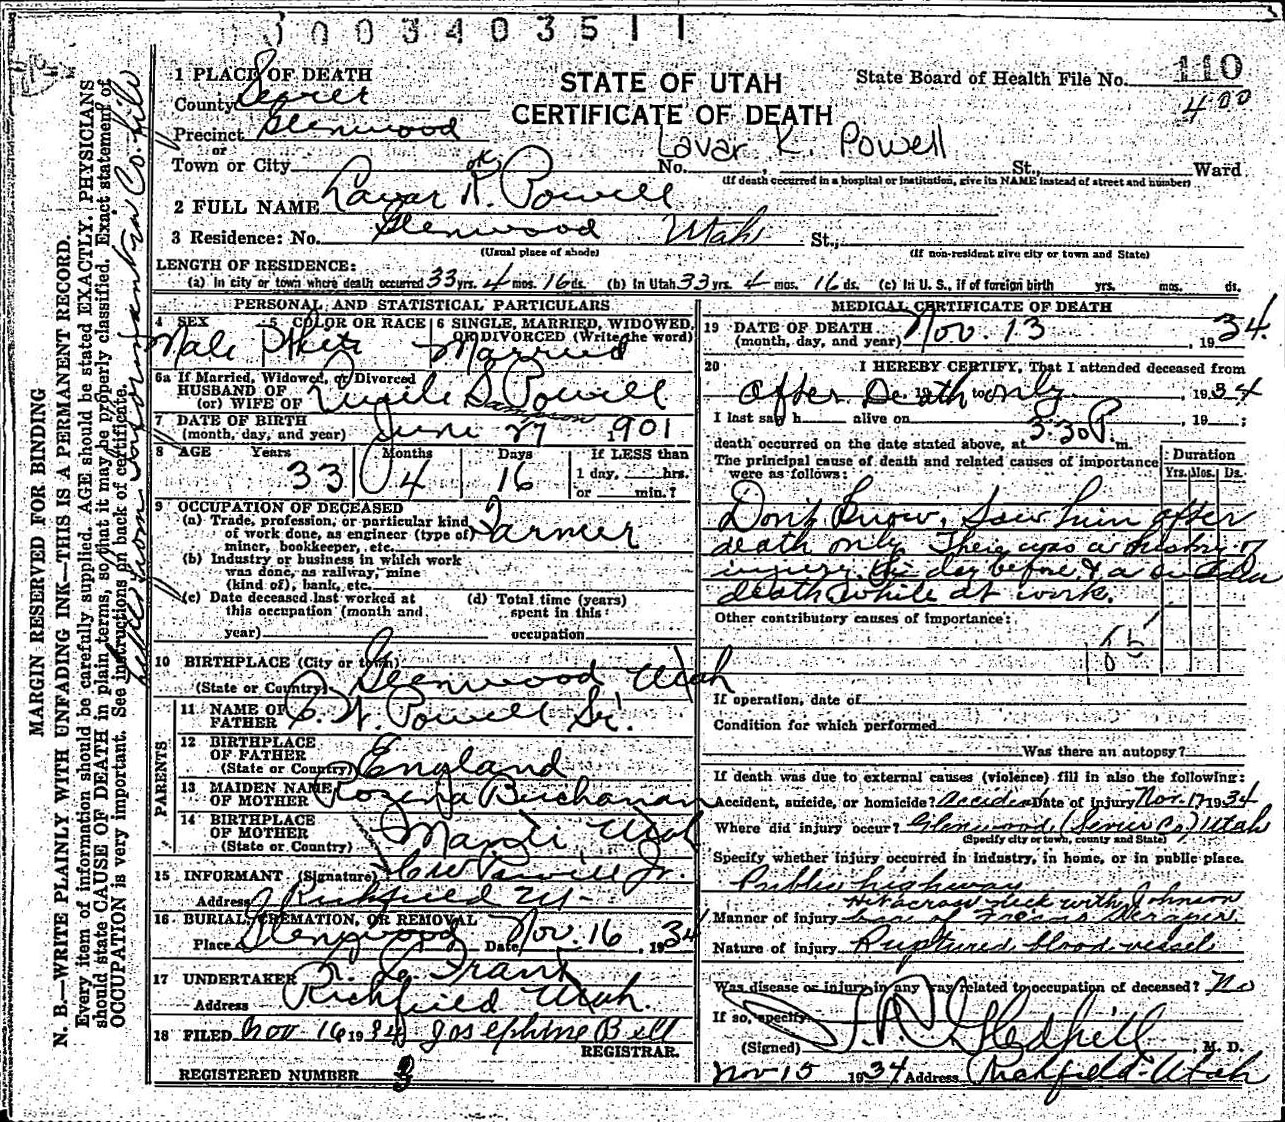 1003403511
STATE OF UTAH
CERTIFICATE OF DEATH
State Board of Health File No. 110
400
1 PLACE OF DEATH
County Sevier
Precinct Glenwood
or
Town or City No. St., Ward
Lavar K. Powell
(If death occurred in a hospital or institution, give its NAME instead of street and number)
2 FULL NAME Lavar K. Powell
ok
3 Residence: No. Glenwood Utah St.,
(Usual place of abode) (If non-resident give city or town and State)
LENGTH OF RESIDENCE:
(a) In city or town where death occurred 33 yrs. 4 mos. 16 ds. (b) In Utah 33 yrs. 4 mos. 16 ds. (c) In U. S., if of foreign birth yrs. mos. ds.
PERSONAL AND STATISTICAL PARTICULARS
4 SEX 5 COLOR OR RACE 6 SINGLE, MARRIED, WIDOWED,
OR DIVORCED (Write the word)
Male White Married
6a If Married, Widowed, or Divorced
HUSBAND OF
(or) WIFE OF S. Powell
7 DATE OF BIRTH
(month, day, and year) June 27 1901
8 AGE Years Months Days If LESS than
33 4 16 1 day, hrs.
or min.?
9 OCCUPATION OF DECEASED
(a) Trade, profession, or particular kind
of work done, as engineer (type of)
miner, bookkeeper, etc. Farmer
(b) Industry or business in which work
was done, as railway, mine
(kind of), bank, etc.
(c) Date deceased last worked at
this occupation (month and
year)
(d) Total time (years)
spent in this
occupation
10 BIRTHPLACE (City or town)
(State or Country) Glenwood Utah
PARENTS
11 NAME OF
FATHER C. W. Powell Sr.
12 BIRTHPLACE
OF FATHER
(State or Country) England
13 MAIDEN NAME
OF MOTHER Buchanan
14 BIRTHPLACE
OF MOTHER
(State or Country) Manti, Utah
15 INFORMANT (Signature) C W Powell Jr.
Address Richfield Ut-
16 BURIAL, CREMATION, OR REMOVAL
Place Glenwood Date Nov. 16, 1934
17 UNDERTAKER Frank
Address Richfield Utah.
18 FILED Nov 16 1934 Josephine Bell
REGISTRAR.
REGISTERED NUMBER
MEDICAL CERTIFICATE OF DEATH
19 DATE OF DEATH
(month, day, and year) Nov. 13, 1934.
20 I HEREBY CERTIFY, That I attended deceased from
After Death only, 1934
I last saw h alive on , 19 ;
death occurred on the date stated above, at 3:30 P. m.
The principal cause of death and related causes of importance
were as follows:
Duration
Yrs. Mos. Ds.
Don't Know. Saw him after
death only. There was a history of
injury the day before & a sudden
death while at work.
Other contributory causes of importance:
If operation, date of
Condition for which performed
Was there an autopsy?
If death was due to external causes (violence) fill in also the following:
Accident, suicide, or homicide? Accident Date of injury Nov. 1934
Where did injury occur? Glenwood (Sevier Co) Utah
(Specify city or town, county and State)
Specify whether injury occurred in industry, in home, or in public place.
Public highway
Hit across neck with Johnson
Manner of injury bar of Fresno Scraper
Nature of injury Ruptured blood vessel
Was disease or injury in any way related to occupation of deceased? No
If so, specify
(Signed) Gledhill M. D.
Nov 15 1934 Address Richfield Utah
MARGIN RESERVED FOR BINDING
N. B.—WRITE PLAINLY WITH UNFADING INK—THIS IS A PERMANENT RECORD.
Every item of information should be carefully supplied. AGE should be stated EXACTLY. PHYSICIANS
should state CAUSE OF DEATH in plain terms, so that it may be properly classified. Exact statement of
OCCUPATION is very important. See instructions on back of certificate.